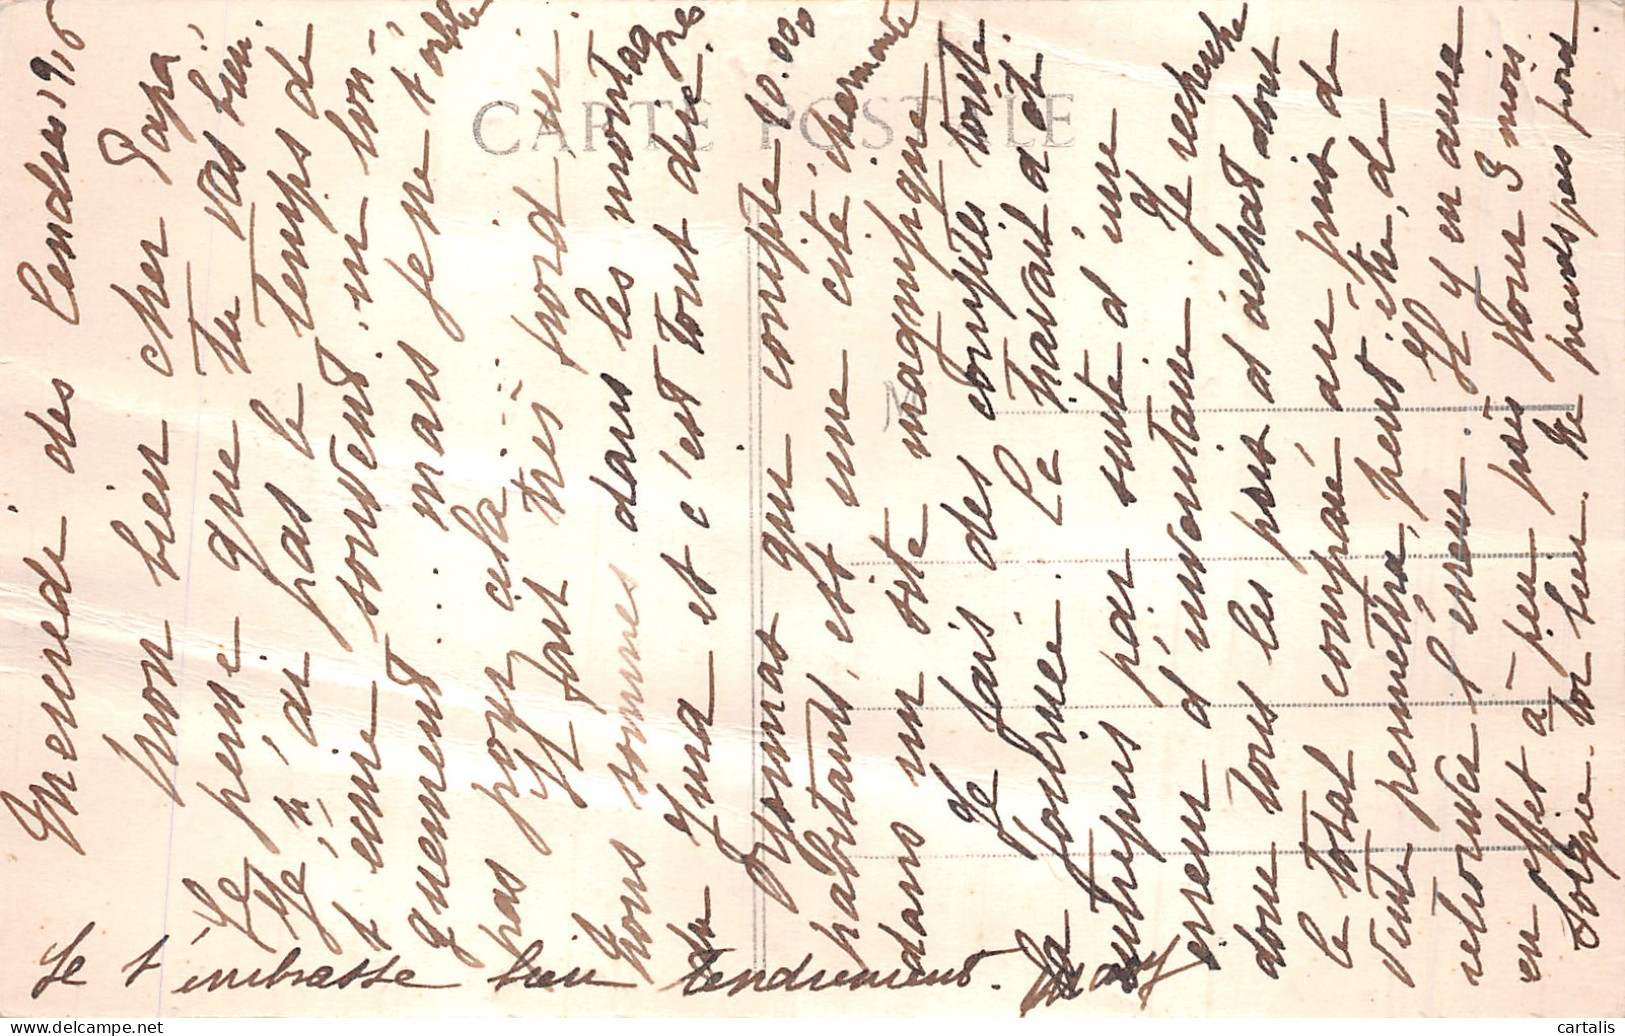 Mercredi des Cendres 1916
Mon bien cher Papa
Je pense que tu vas bien.
Je n'ai pas le temps de
t'écrire souvent, ni lon-
guement... mais je ne t'oublie
pas pour cela...
Il fait très froid ici
Nous sommes dans les montagnes
du Jura et c'est tout dire.
Morez qui compte 10.000
habitants, est une cité charmante
dans un site magnifique
Je fais des comptes toute
la journée. Le travail a été
entrepris par suite d'une
erreur d'inventaire. Je recherche
donc tous les prix d'achat dont
le total comparé au prix de
vente permettra, peut être, de
retrouver l'erreur. Il y en aura
en effet à peu près pour 3 mois.
Soigne-toi bien. Ne prends pas froid.
Je t'embrasse bien tendrement.
CARTE POSTALE
cartalis